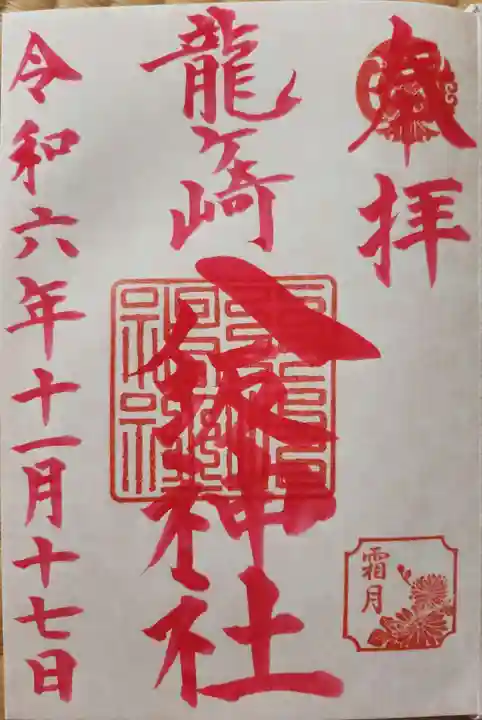 奉拝
霜月
龍ヶ崎
八坂神社
令和六年十一月十七日